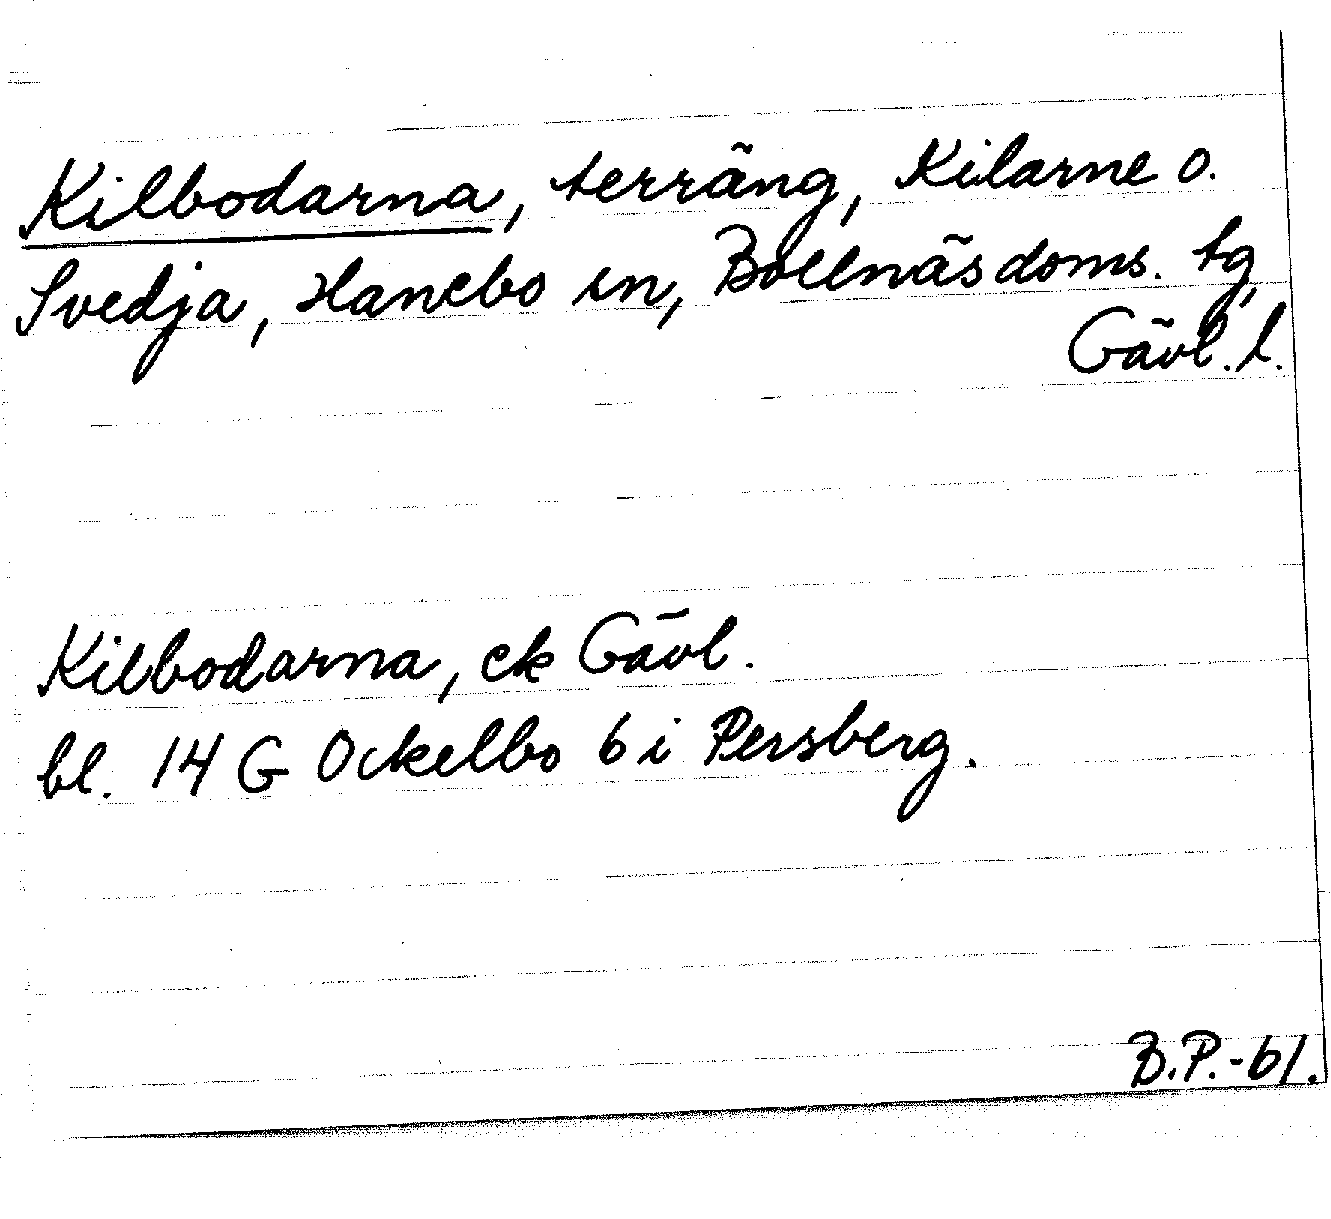 Kilbodarna, terräng, Kilarne o.
Svedja, Hanebo sn, Bollnäs doms. tg,
Gävl. l.
Kilbodarna, ek Gävl.
bl. 14 G Ockelbo 6 i Persberg.
B.P.-61.